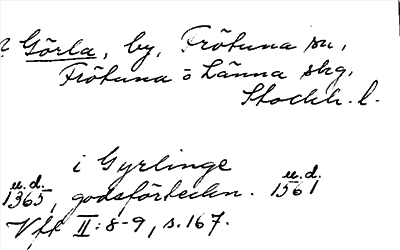 ? Görla, by, Frötuna sn,
Frötuna o Länna skg,
Stockh. l.
i Gyrlinge
u.d. 1365, godsförteckn. u.d. 1561
Vft II:8-9, s.167.